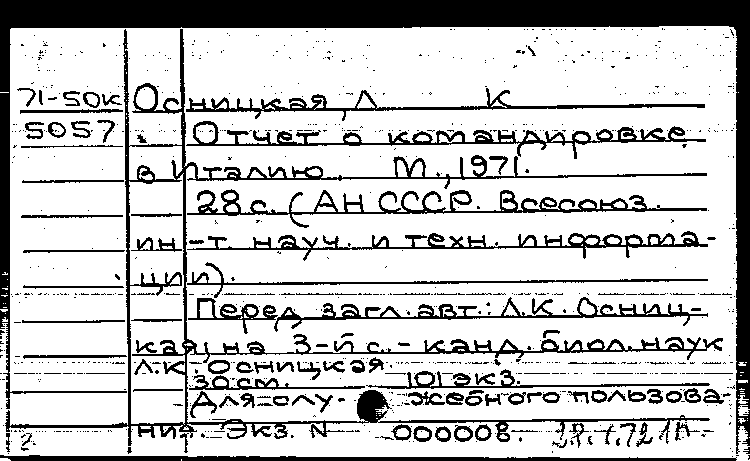 71-50к Осницкая, Л К
5057 Отчет о командировке
в Италию. М., 1971.
28 с. (АН СССР. Всесоюз.
ин-т. науч. и техн. информа-
ции).
Перед загл. авт.: Л.К. Осниц-
кая, на 3-й с. - канд. биол. наук
Л.К. Осницкая.
30 см. 101 экз.
Для слу- жебного пользова-
ния. Экз. N 000008. 28.1.72
2